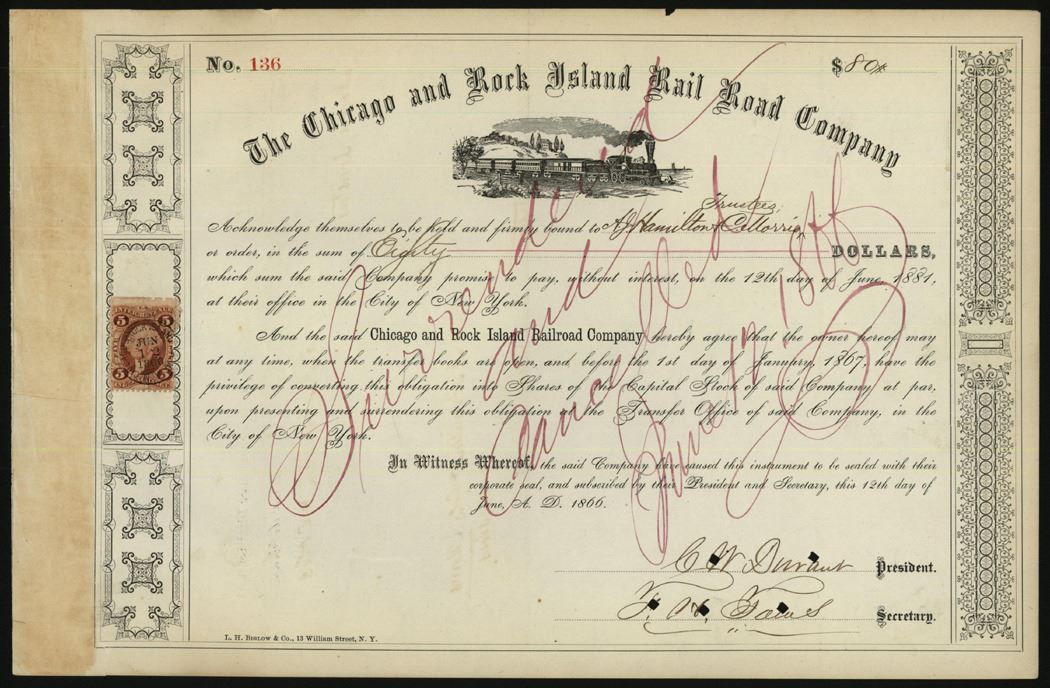 No. 136
$80
The Chicago and Rock Island Rail Road Company
Trustees
Acknowledge themselves to be held and firmly bound to AJ Hamilton & C Morris
or order, in the sum of Eighty DOLLARS,
which sum the said Company promise to pay, without interest, on the 12th day of June, 1881,
at their office in the City of New York.
And the said Chicago and Rock Island Railroad Company hereby agree that the owner hereof may
at any time, when the transfer books are open, and before the 1st day of January, 1867, have the
privilege of converting this obligation into Shares of the Capital Stock of said Company at par,
upon presenting and surrendering this obligation at the Transfer Office of said Company, in the
City of New York.
In Witness Whereof, the said Company have caused this instrument to be sealed with their
corporate seal, and subscribed by their President and Secretary, this 12th day of
June, A. D. 1866.
Surrendered
and
Cancelled
June
C W Durant President.
F. H. Tows Secretary.
5 5
JUN
5 5
L. H. BIGLOW & CO., 13 William Street, N. Y.